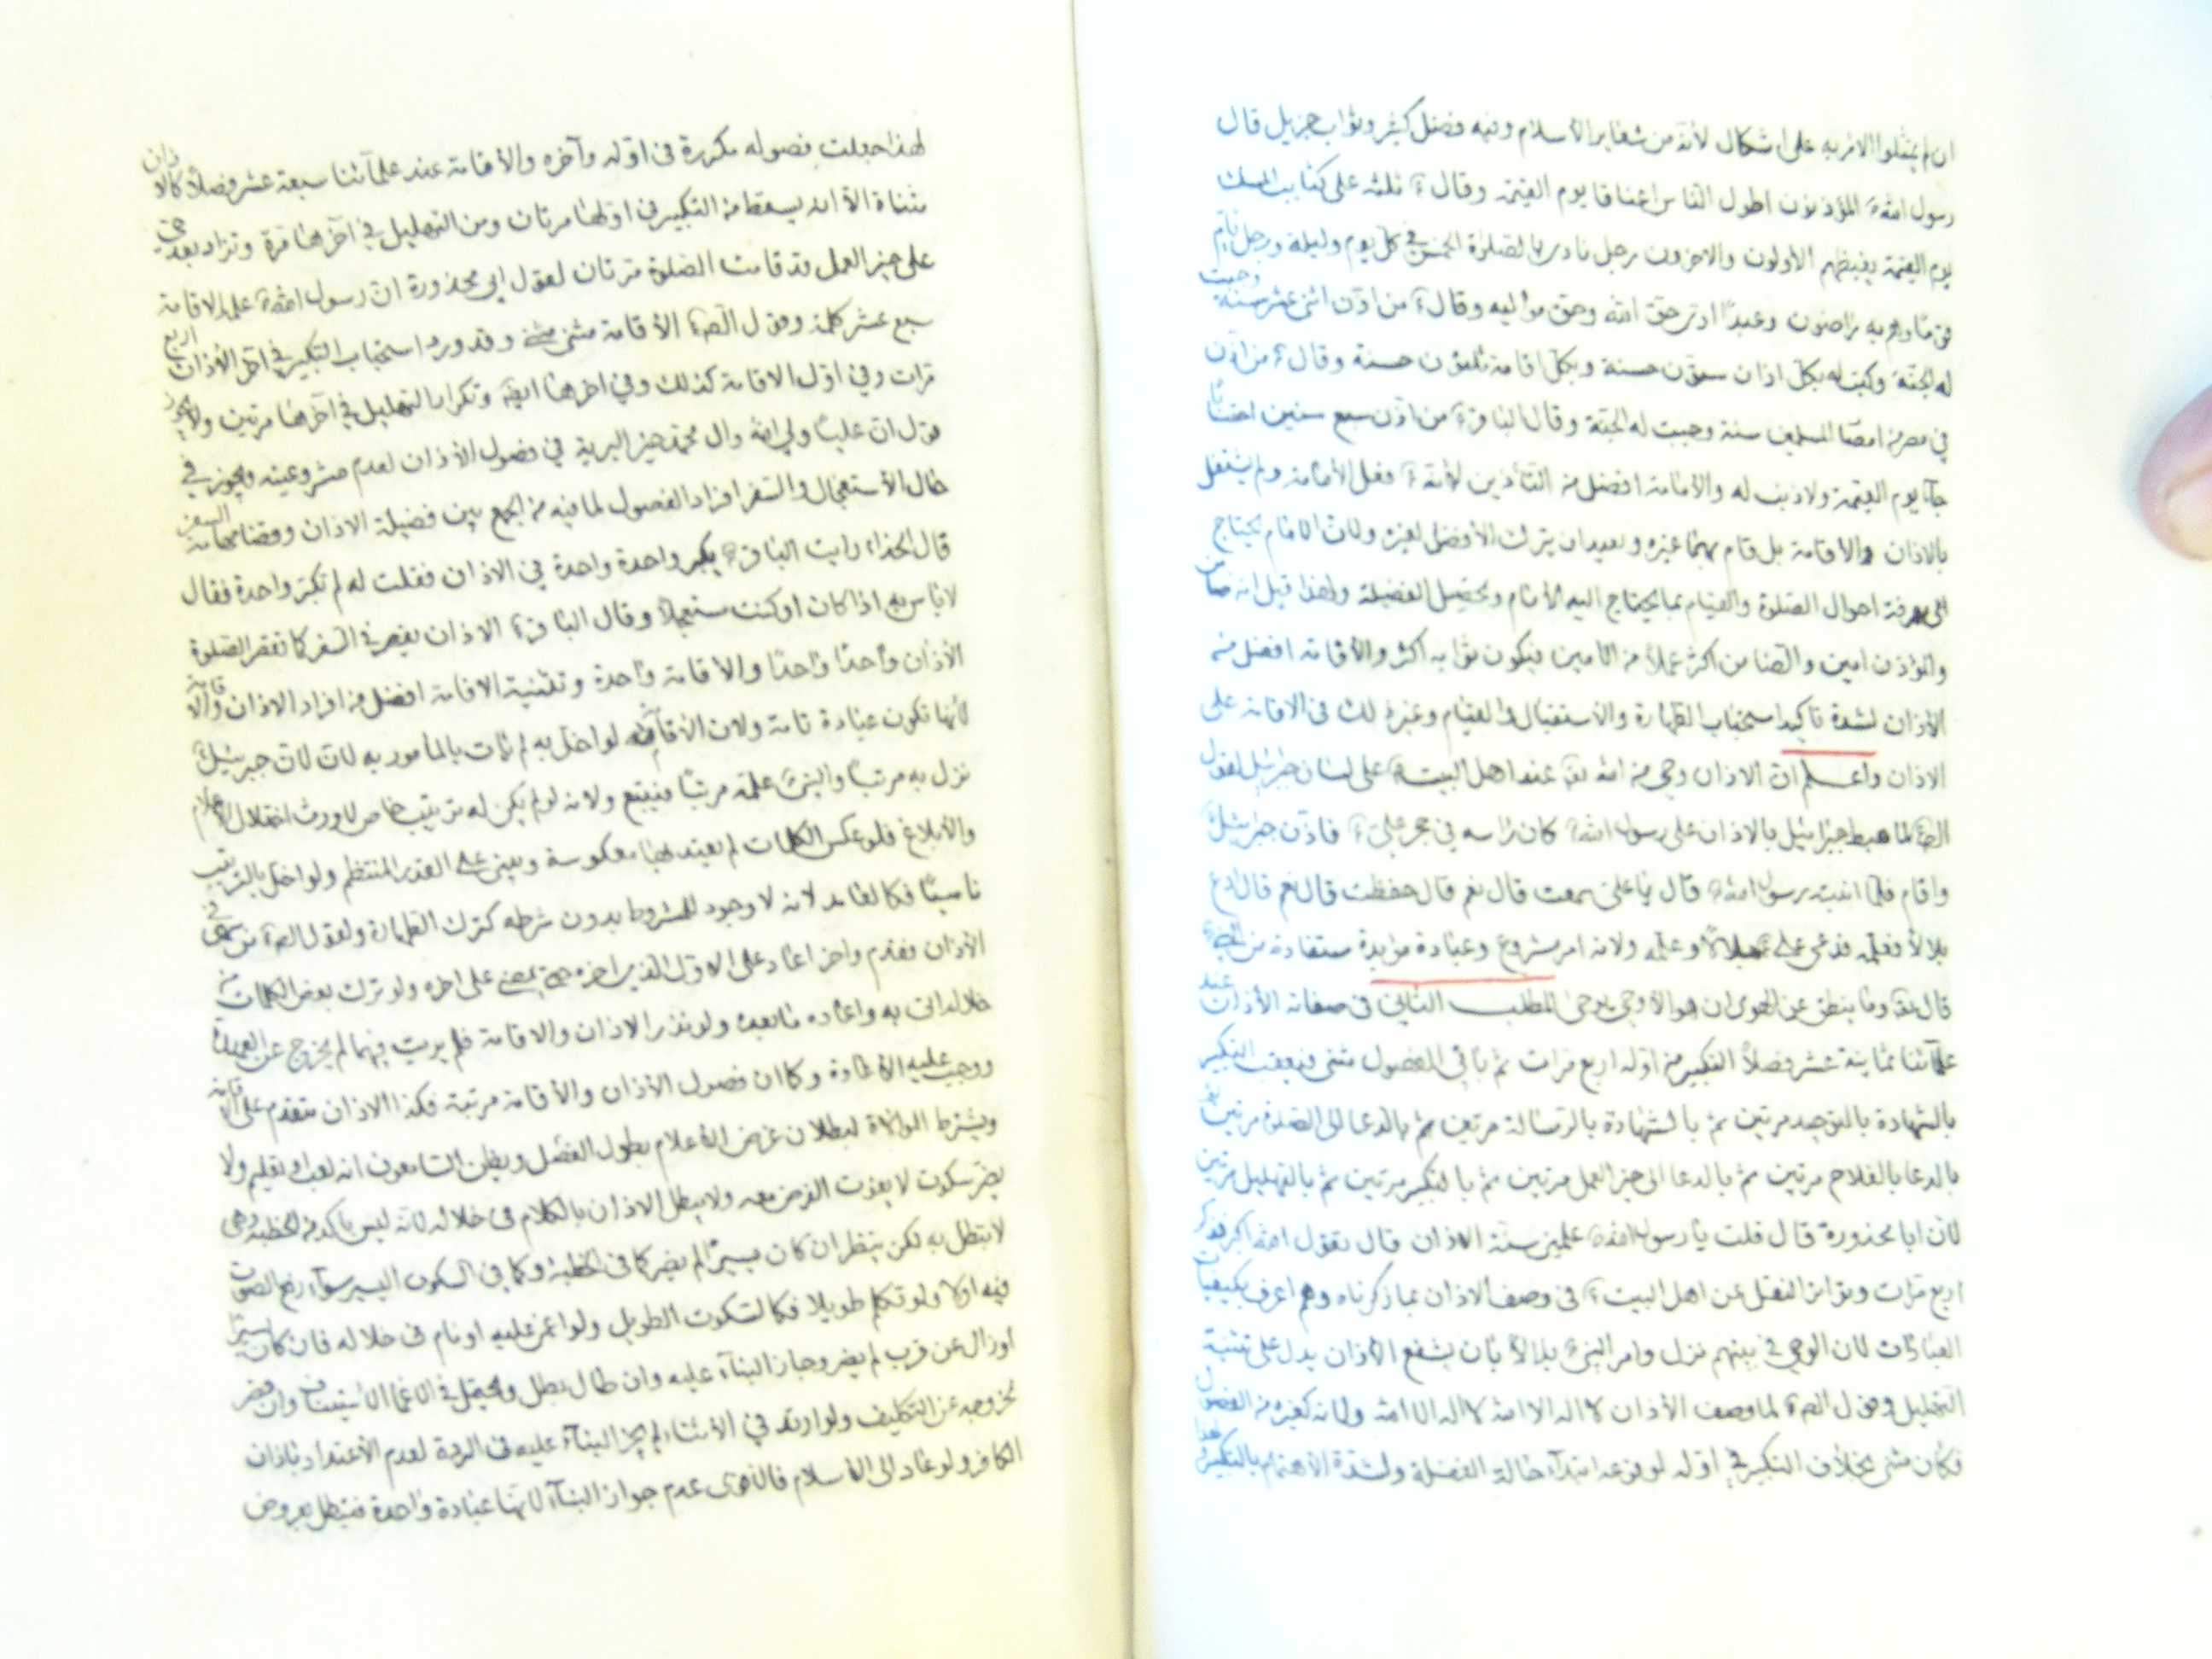 ان لم يمتثلوا الا فربه على اشكال لأنه من شعاير الأسلام وفيه فضل كثير وثواب جزيل قال
رسول الله المؤذنون اطول الناس اعناقا يوم القيمة وقال ثلثه على كثايب المسك
يوم القيمة يغبطهم الأولون والاخرون رجل نادى بالصلوة الخمس في كل يوم وليلة ورجل يؤم
به راضون وعبد ادى حق الله وحق مواليه وقال من اذن اثنى عشر سنة وجبت
له الجنة وكتب له بكل اذان ستون حسنة وبكل اقامة ثلثون حسنة وقال من اذن
في مصر من امصار المسلمين سنة وجبت له الجنة وقال الباقر من اذن سبع سنين احتسابا
جاء يوم القيمة ولا ذنب له والامامة افضل من التأذين لأنه فعل الأمامة ولم يشتغل
بالاذان والاقامة بل قام بهما غيره وبعيد ان يترك الأفضل لغيره ولان الامام يحتاج
الى معرفة احوال الصلوة والقيام بما يحتاج اليه الأمام وتحصيل الفضيلة ولهذا قيل انه ضامن
والمؤذن امين والضامن اكثر عملا من الامين فيكون ثوابه اكثر والأقامة افضل من
الأذان لشدة تاكيد استحباب الطهارة والأستقبال والقيام وغير ذلك في الاقامة على
الاذان واعلم ان الاذان وحي من الله تعالى عند اهل البيت على لسان جبرئيل لقول
لما هبط جبرائيل بالاذان على رسول الله كان راسه في حجر علي فاذن جبرئيل
واقام فلما انتبه رسول الله قال يا علي سمعت قال نعم قال حفظت قال نعم قال ادع
بلالا فعلمه فدعى علي بلالا وعلمه ولانه امر مشروع وعبادة مؤيدة مستفادة من
قال تعالى وما ينطق عن الهوى ان هو الا وحي يوحى المطلب الثاني في صفاته الأذان عند
علمائنا ثمانية عشر فصلا التكبير من اوله اربع مرات ثم باقي الفصول مثنى فيعقب التكبير
بالشهادة بالتوحيد مرتين ثم بالشهادة بالرسالة مرتين ثم بالدعا الى الصلوة مرتين ثم
بالدعا بالفلاح مرتين ثم بالدعا الى خير العمل مرتين ثم بالتكبير مرتين ثم بالتهليل مرتين
لان ابا محذورة قال قلت يا رسول الله علمني سنة الاذان قال تقول الله اكبر فذكر
اربع مرات وتواتر النقل عن اهل البيت في وصف الاذان بما ذكرناه وهم اعرف بكيفيات
العبادات لان الوحي في بيتهم نزل وامر النبي بلالا بان يشفع الاذان يدل على تثنية
التهليل وقول لما وصف الأذان لا اله الا الله لا اله الا الله ولانه كغيره من الفصول
فكان مثنى بخلاف التكبير في اوله لوقوعه ابتداء حالة الغفلة ولشدة الأهتمام بالتكبير لهذا
لهذا جعلت فصوله مكررة في اوله وآخره والأقامة عند علمائنا سبعة عشر فصلا كالاذان
مثناة الا انه يسقط من التكبير في اولها مرتان ومن التهليل في آخرها مرة وتزاد بعد حي
على خير العمل قد قامت الصلوة مرتان لقول ابي محذورة ان رسول الله علمه الاقامة
سبع عشر كلمة وقول الأقامة مثنى مثنى وقد ورد استحباب التكبير في آخر الأذان اربع
مرات وفي اول الاقامة كذلك وفي اخرها ايضا وتكرار التهليل في آخرها مرتين ولا يجوز
قول ان عليا ولي الله وال محمد خير البرية في فصول الأذان لعدم مشروعيته ويجوز في
حال الأستعجال والسفر افراد الفصول لما فيه من الجمع بين فضيلة الاذان السفر
قال الحذاء رايت الباقر يكبر واحدة واحدة في الاذان فقلت له لم تكبر واحدة فقال
لا باس به اذا كان او كنت مستعجلا وقال الباقر الاذان يقصر في السفر كما تقصر الصلوة
الأذان واحدا واحدا والاقامة واحدة وتثنية الاقامة افضل من افراد الاذان والاقامة
لأنها تكون عبادة تامة ولان الأقامة لو اخل به لم يات بالمأمور به لان جبرئيل
نزل به مرتبا والنبي علمه مرتبا فيتبع ولانه لو لم يكن له ترتيب خاص لاورث اختلال الاعلام
والأبلاغ فلو عكس الكلمات لم يعتد بها معكوسة ويبنى على القدر المنتظم ولو اخل بالترتيب
ناسيا فكالعامد لانه لا وجود للمشروط بدون شرطه كترك الطهارة ولقول من سهى في
الأذان فقدم واخر اعاد على الاول الذي اخره حتى يمضي على اخره ولو ترك بعض الكلمات من
خلاله اتى به واعاد ما بعده ولو نذر الاذان والاقامة فلم يرتب فيهما لم يخرج عن العهدة
ووجب عليه الأعادة وكما ان فصول الأذان والأقامة مرتبة فكذا الاذان متقدم على الاقامة
ويشترط الموالاة لبطلان غرض الأعلام بطول الفصل ويظن السامعون انه لعب او تعليم ولا
يضر سكوت لا يفوت الغرض معه ولا يبطل الاذان بالكلام في خلاله لانه ليس باكد من الخطبة وهي
لا تبطل به لكن ينظر ان كان يسيرا لم يضر كما في الخطبة وكما في السكوت اليسير سواء رفع الصوت
فيه او لا ولو تكلم طويلا فكالسكوت الطويل ولو اغمي عليه او نام في خلاله فان كان يسيرا
او زال عن قرب لم يضر وجاز البناء عليه وان طال بطل ويحتمل في الاغما الأستيناف وان قصر
لخروجه عن التكليف ولو ارتد في الأثناء لم يجز البناء عليه في الردة لعدم الأعتداد باذان
الكافر ولو عاد الى الأسلام فالاقوى عدم جواز البناء لانها عبادة واحدة فتبطل بعروض